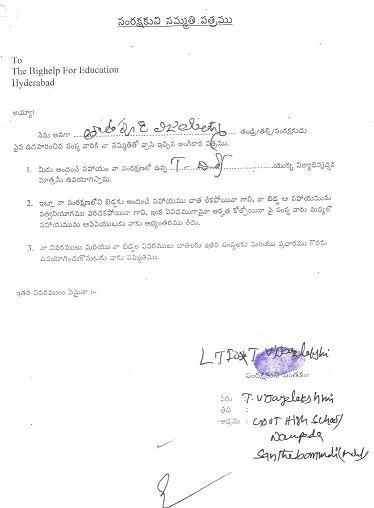 సంరక్షకుని సమ్మతి పత్రము
To
The Bighelp For Education
Hyderabad
అయ్యా!
నేను అనగా తండ్రి/తల్లి/సంరక్షకుడు
పైన ఉదహరించిన సంస్థ వారికి నా సమ్మతితో వ్రాసి ఇచ్చిన అంగీకార పత్రము.
1. మీరు అందించే సహాయం నా సంరక్షణలో ఉన్న T. యొక్క విద్యాభివృద్ధికి
మాత్రమే ఉపయోగిస్తాను.
2. ఇట్లా నా సంరక్షణలోని బిడ్డకు అందించే సహాయము దాత లేకపోయినా గాని, నా బిడ్డ ఆ సహాయమును
సద్వినియోగము పరచకపోయినా గాని, ఇంక ఏవిధముగానైనా అర్హత కోల్పోయినా పై సంస్థ వారు మధ్యలో
సహాయమును ఆపివేయుటకు నాకు అభ్యంతరము లేదు.
3. నా వివరములు మరియు నా బిడ్డల వివరములు దాతలకు ఇతర సంస్థలకు మరియు ప్రచారము కొరకు
ఉపయోగించుకొనుటకు నాకు సమ్మతము.
ఇతర వివరములు ఏమైనా :-
T. Vijayalakshmi
సంరక్షకుని సంతకం
పేరు : T. Vijayalakshmi
తేది :
అడ్రసు : GOVT High School
Naupada
Santhabommali (Mdl)